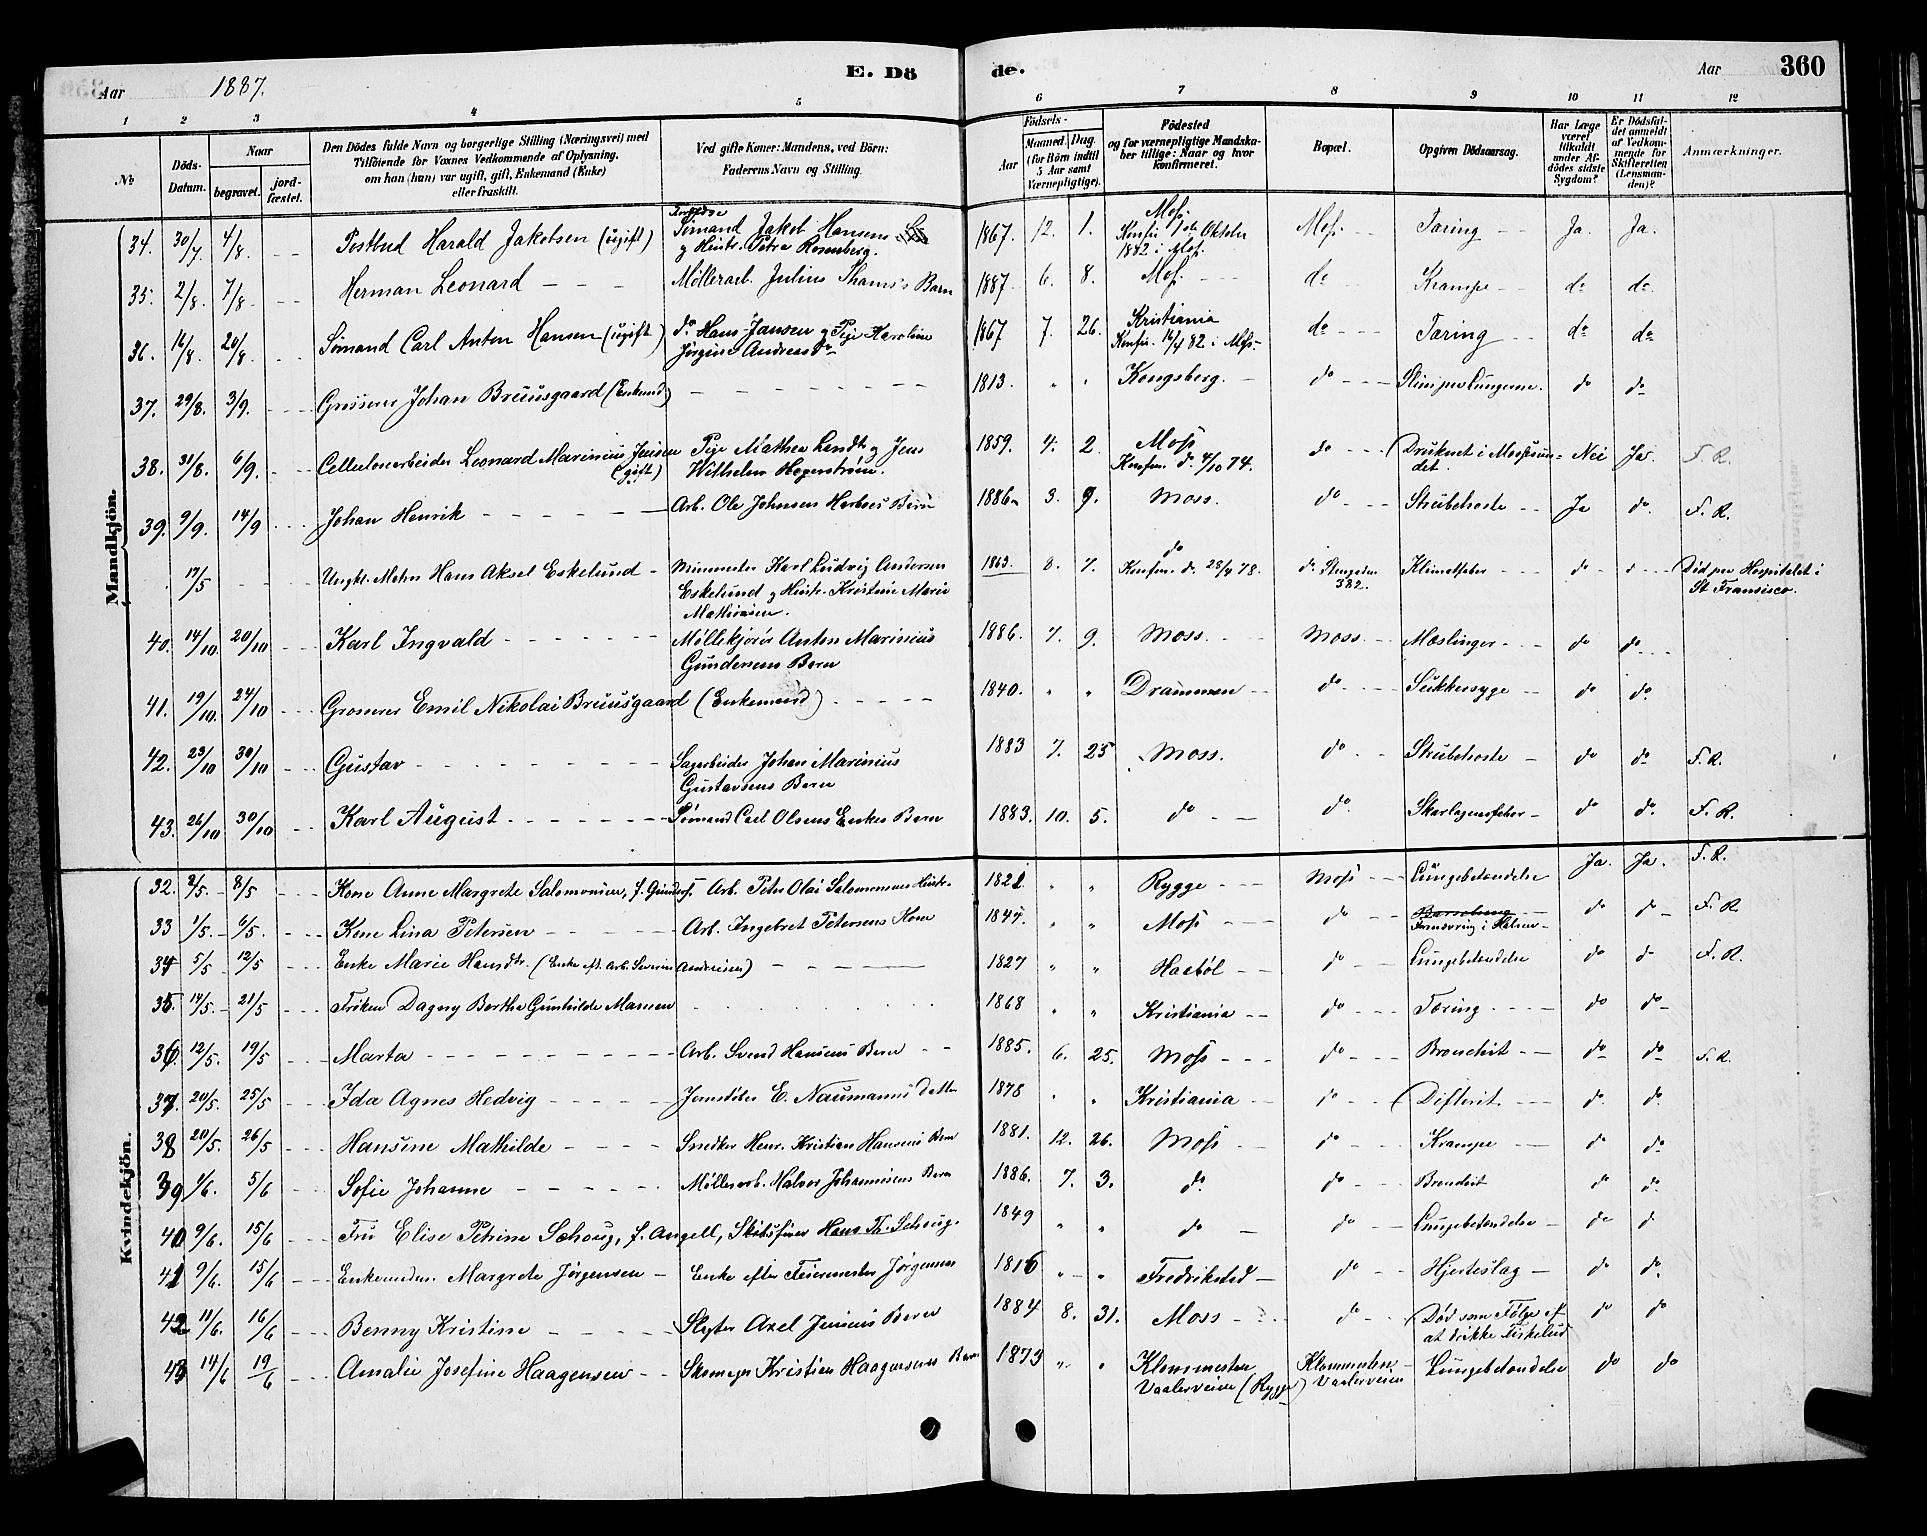 Aar 1887. E. Dö de. Aar 360
1 2 3 4 5 6 7 8 9 10 11 12
№ Döds-Datum. Naar begravet. jord-fæstet. Den Dödes fulde Navn og borgerlige Stilling (Næringsvei) med Tilföiende for Voxnes Vedkommende af Oplysning, om han (hun) var ugift, gift, Enkemand (Enke) eller fraskilt. Ved gifte Koner: Mandens, ved Börn: Faderens Navn og Stilling. Födsels- Aar Maaned. Dag. (for Börn indtil 5 Aar samt Værnepligtige). Födested og for værnepligtige Mandskaber tillige: Naar og hvor konfirmeret. Bopæl. Opgiven Dödsaarsag. Har Læge været tilkaldt under Afdödes sidste Sygdom? Er Dödsfaldet anmeldt af Vedkommende for Skifteretten (Lensmanden)? Anmærkninger.
Mandkjön.
34. 30/7 4/8. Postbud Harald Jakobsen (ugift) Sömand Jakob Hansens 1867. 12. 1. Moss. Moss. Tæring Ja. Ja.
g Hustr. Petra Rosenberg. Konfir. 1ste Oktober
1882 i Moss.
35. 2/8. 7/8. Herman Leonard Möllerarb. Julius Thams's Barn 1887. 6. 8. Moss. do Krampe do do.
36. 16/8. 20/8. Sömand Carl Anton Hansen (ugift) do Hans Jansen g Pige Karoline 1867 7. 26. Kristiania do Tæring do do
Jörgine Andreasdtr Konfir. 16/4 82 i Moss
37. 29/8. 3/9. Grosserer Johan Bruusgaard (Enkemd) 1813. " " Kongsberg. do Slim paa Lungerne. do do
38. 31/8. 6/9. Cellulosearbeider Leonard Marinius Jensen Pige Mathea Lendtr g Jens 1859. 4. 2. Moss do Druknet i Mossesun- Nei Ja. F. R.
(gift) Wilhelm Hegerström. Konfir. d. 4/10 74. det.
39. 9/9. 14/9 Johan Henrik Arb. Ole Johnsen Barn 1886. 3. 9. Moss. do Strubehoste Ja do. F. R.
17/5 Ungkl. Mohn Hans Aksel Eskelund Murmester Karl Ludvig Andersen 1863. 8. 7. do Konfir. d. 28/4 78. do Klimatfeber do d Död paa Hospitalet i
Eskelund g Hustr. Kristine Marie 382. St Fransisco.
Mathisen.
40. 14/10. 20/10 Karl Ingvald Möllekjörer Anton Marinius 1886. 7. 9. Moss. Moss. Mæslinger do do
Gundersens Barn
41. 19/10. 24/10 Grosserer Emil Nikolai Bruusgaard (Enkemand) 1840. " " Drammen do Sukkersyge do do
42. 23/10 30/10 Gustav Sagarbeider Johan Marinius 1883 7. 25 Moss. do Strubehoste do do F. R.
Gustavsens Barn
43. 26/10 30/10 Karl August Sömand Carl Olsens Enkes Barn 1883. 10. 5. do do Skarlagensfeber do do. F. R.
Kvindekjön.
32. 2/5. 8/5 Kone Anne Margrete Salomonsen, f. Gundersd. Arb. Peter Olai Salomonsens Hustr. 1821. " " Rygge Moss Lungebetændelse Ja. Ja. F. R.
33 1/5. 6/5. Kone Lina Petersen Arb. Ingebret Petersens Kone 1847. " " Moss do Barselseng do do F. R.
i Halsen
34 5/5 12/5 Enke Marie Hansdtr. (Enke eft. Arb. Severin Andersen) 1827 " " Haaböl do Lungebetændelse do d F. R.
35. 14/5. 21/5 Fröken Dagny Berthe Gunhilde Mamen 1868 " " Kristiania do Tæring do do
36. 12/5. 19/5 Marta Arb. Svend Hansens Barn 1885. 6. 25. Moss do Bronchit do do F. R.
37. 20/5. 25/5 Ida Agnes Hedvig Jernstöber E. Naumanns Datter 1878 " " Kristiania do Difterit do do.
38 20/5. 26/5 Hansine Mathilde Snedker Henr. Kristian Hansens Barn 1881. 12. 26. Moss do Krampe do do
39 1/6. 5/6 Sofie Johanne Möllerarb. Halvor Johannesens Barn 1886. 7. 3. do. do Bronchit do do.
40 9/6. 15/6 Fru Elise Petrine Schoug, f. Angell, Skibsförer Hans Th. Schoug. 1849 " " do do Lungebetændelse do d
41 9/6. 15/6 Enkemadm. Margrete Jörgensen Enke efter Feiermester Jörgensen 1816 " " Fredrikstad do Hjerteslag do do.
42 11/6. 16/6 Benny Kristine Slagter Axel Jensens Barn 1884 8. 31. Moss do Död som Fölge af do do
at drikke Fiskelud
43 14/6 19/6 Amalie Josefine Haagensen Skomagr Kristian Haagensens Barn 1873 " " Klommesten Klommesten Lungebetændelse do do
Vaalerveien (Rygge) Vaalerveien